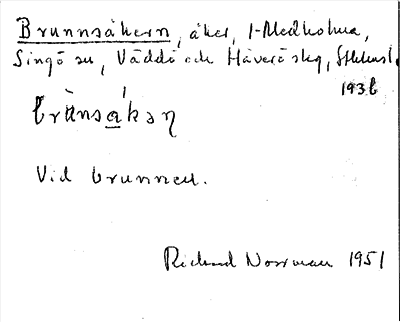 Brunnsåkern, åker, 1 Medholma,
Singö sn, Väddö och Häverö skg, Sthlms l.
1936
brùnsákəɳ
Vid brunnen.
Richard Norrman 1951